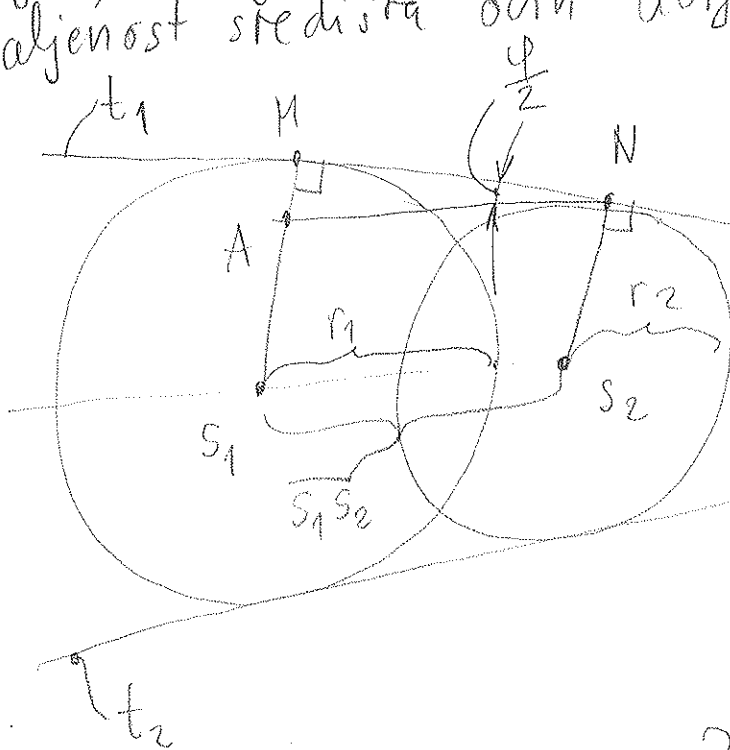 aljenost središta
φ/2
t₁
M
N
A
r₁
r₂
S₁
S₂
S₁S₂
t₂